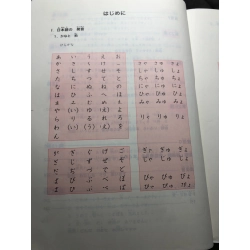 はじめに
I 日本語の 発音
1. かなと 拍
ひらがな
あ い う え お
か き く け こ きゃ きゅ きょ
さ し す せ そ しゃ しゅ しょ
た ち つ て と ちゃ ちゅ ちょ
な に ぬ ね の にゃ にゅ にょ
は ひ ふ へ ほ ひゃ ひゅ ひょ
ま み む め も みゃ みゅ みょ
や (い) ゆ (え) よ
ら り る れ ろ りゃ りゅ りょ
わ (い) (う) (え) を
が ぎ ぐ げ ご ぎゃ ぎゅ ぎょ
ざ じ ず ぜ ぞ じゃ じゅ じょ
だ ぢ づ で ど
ば び ぶ べ ぼ びゃ びゅ びょ
ぱ ぴ ぷ ぺ ぽ ぴゃ ぴゅ ぴょ